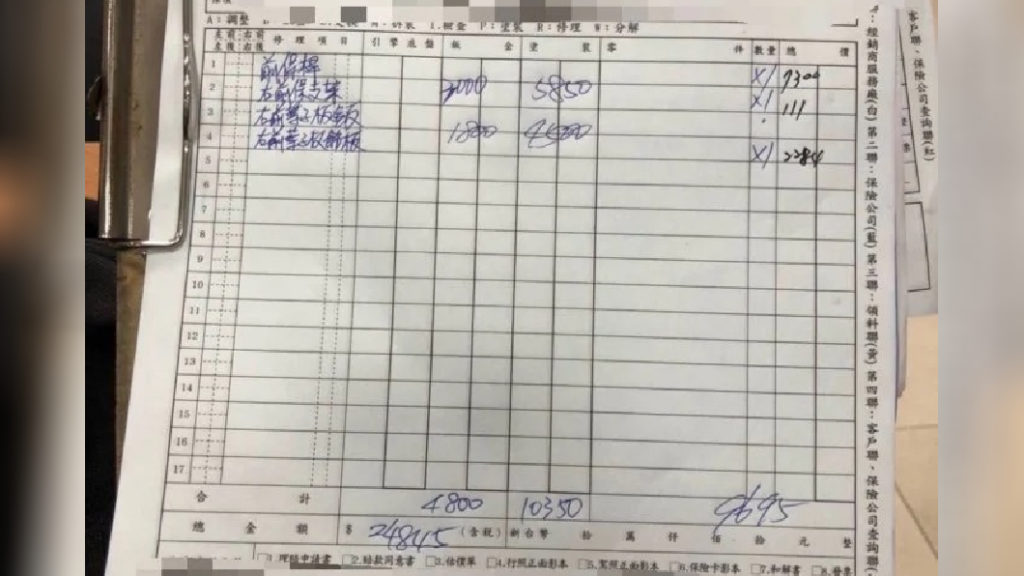 A：調整 拆裝 I：檢查 P：塗裝 R：修理 W：分解
左前 右前 左後 右後 修理項目 引擎底盤 鈑金 塗裝 零件 數量 總價
1 前保桿 X1 7300
2 右前保支架 3000 5850 X1 111
3 右前葉子板
4 右前葉子板飾板 1800 4500
5 X1 2284
6
7
8
9
10
11
12
13
14
15
16
17
合計 4800 10350 9695
總金額 $ 24845 (含稅) 新台幣 拾 萬 仟 佰 拾 元 整
□1.理賠申請書 □2.賠款同意書 □3.估價單 □4.行照正面影本 □5.駕照正面影本 □6.保險卡影本 □7.和解書 □8.發票
經銷商服務廠(白) 第二聯：保險公司(藍) 第三聯：領料聯(黃) 第四聯：客戶聯、保險公司查詢聯
客戶聯、保險公司查詢聯(紅)